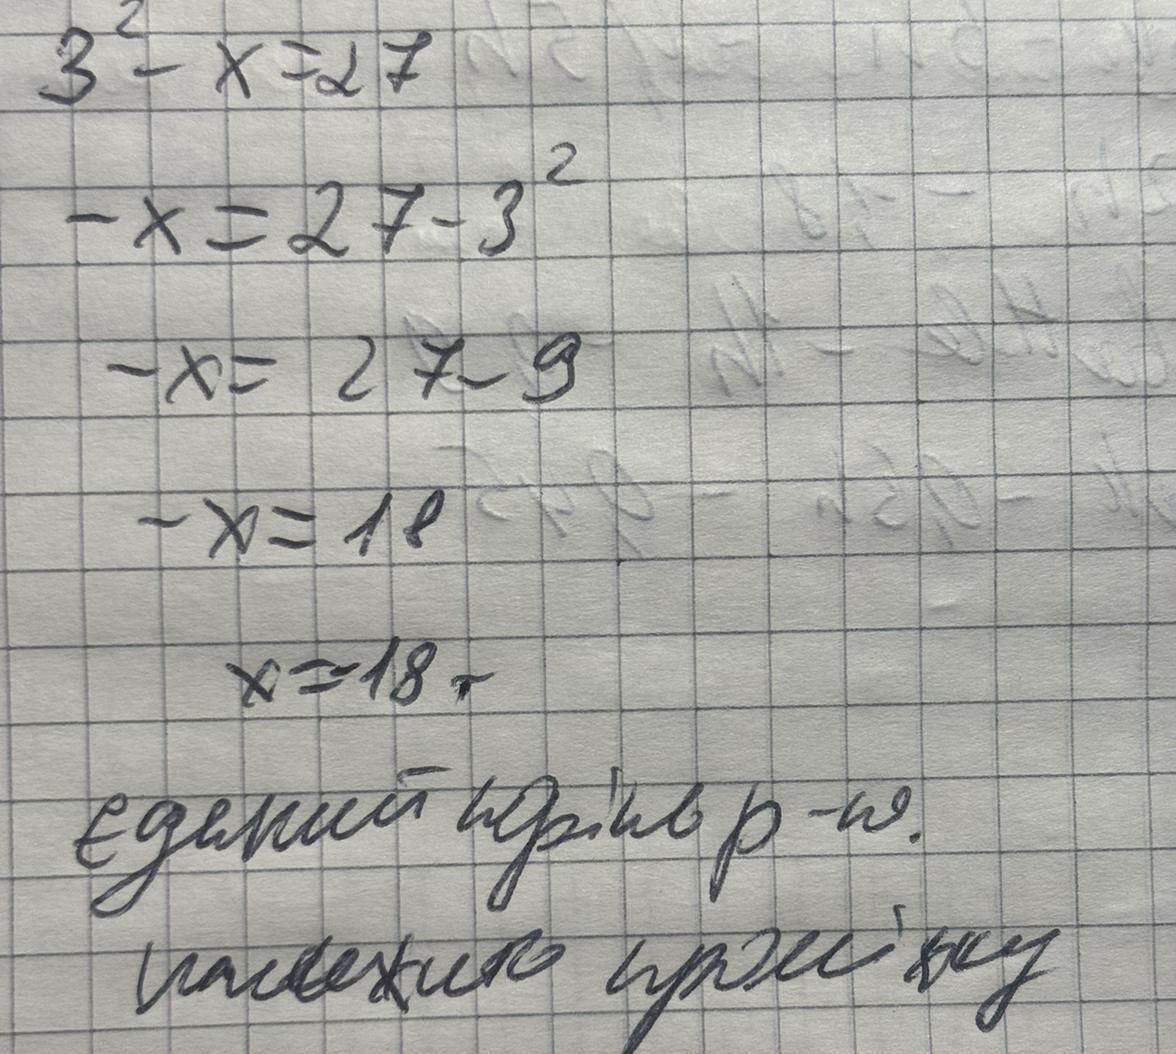 3² - x = 27
- x = 27 - 3²
- x = 27 - 9
- x = 18
x = -18
Єдиний корінь р-ня.
належить проміжку